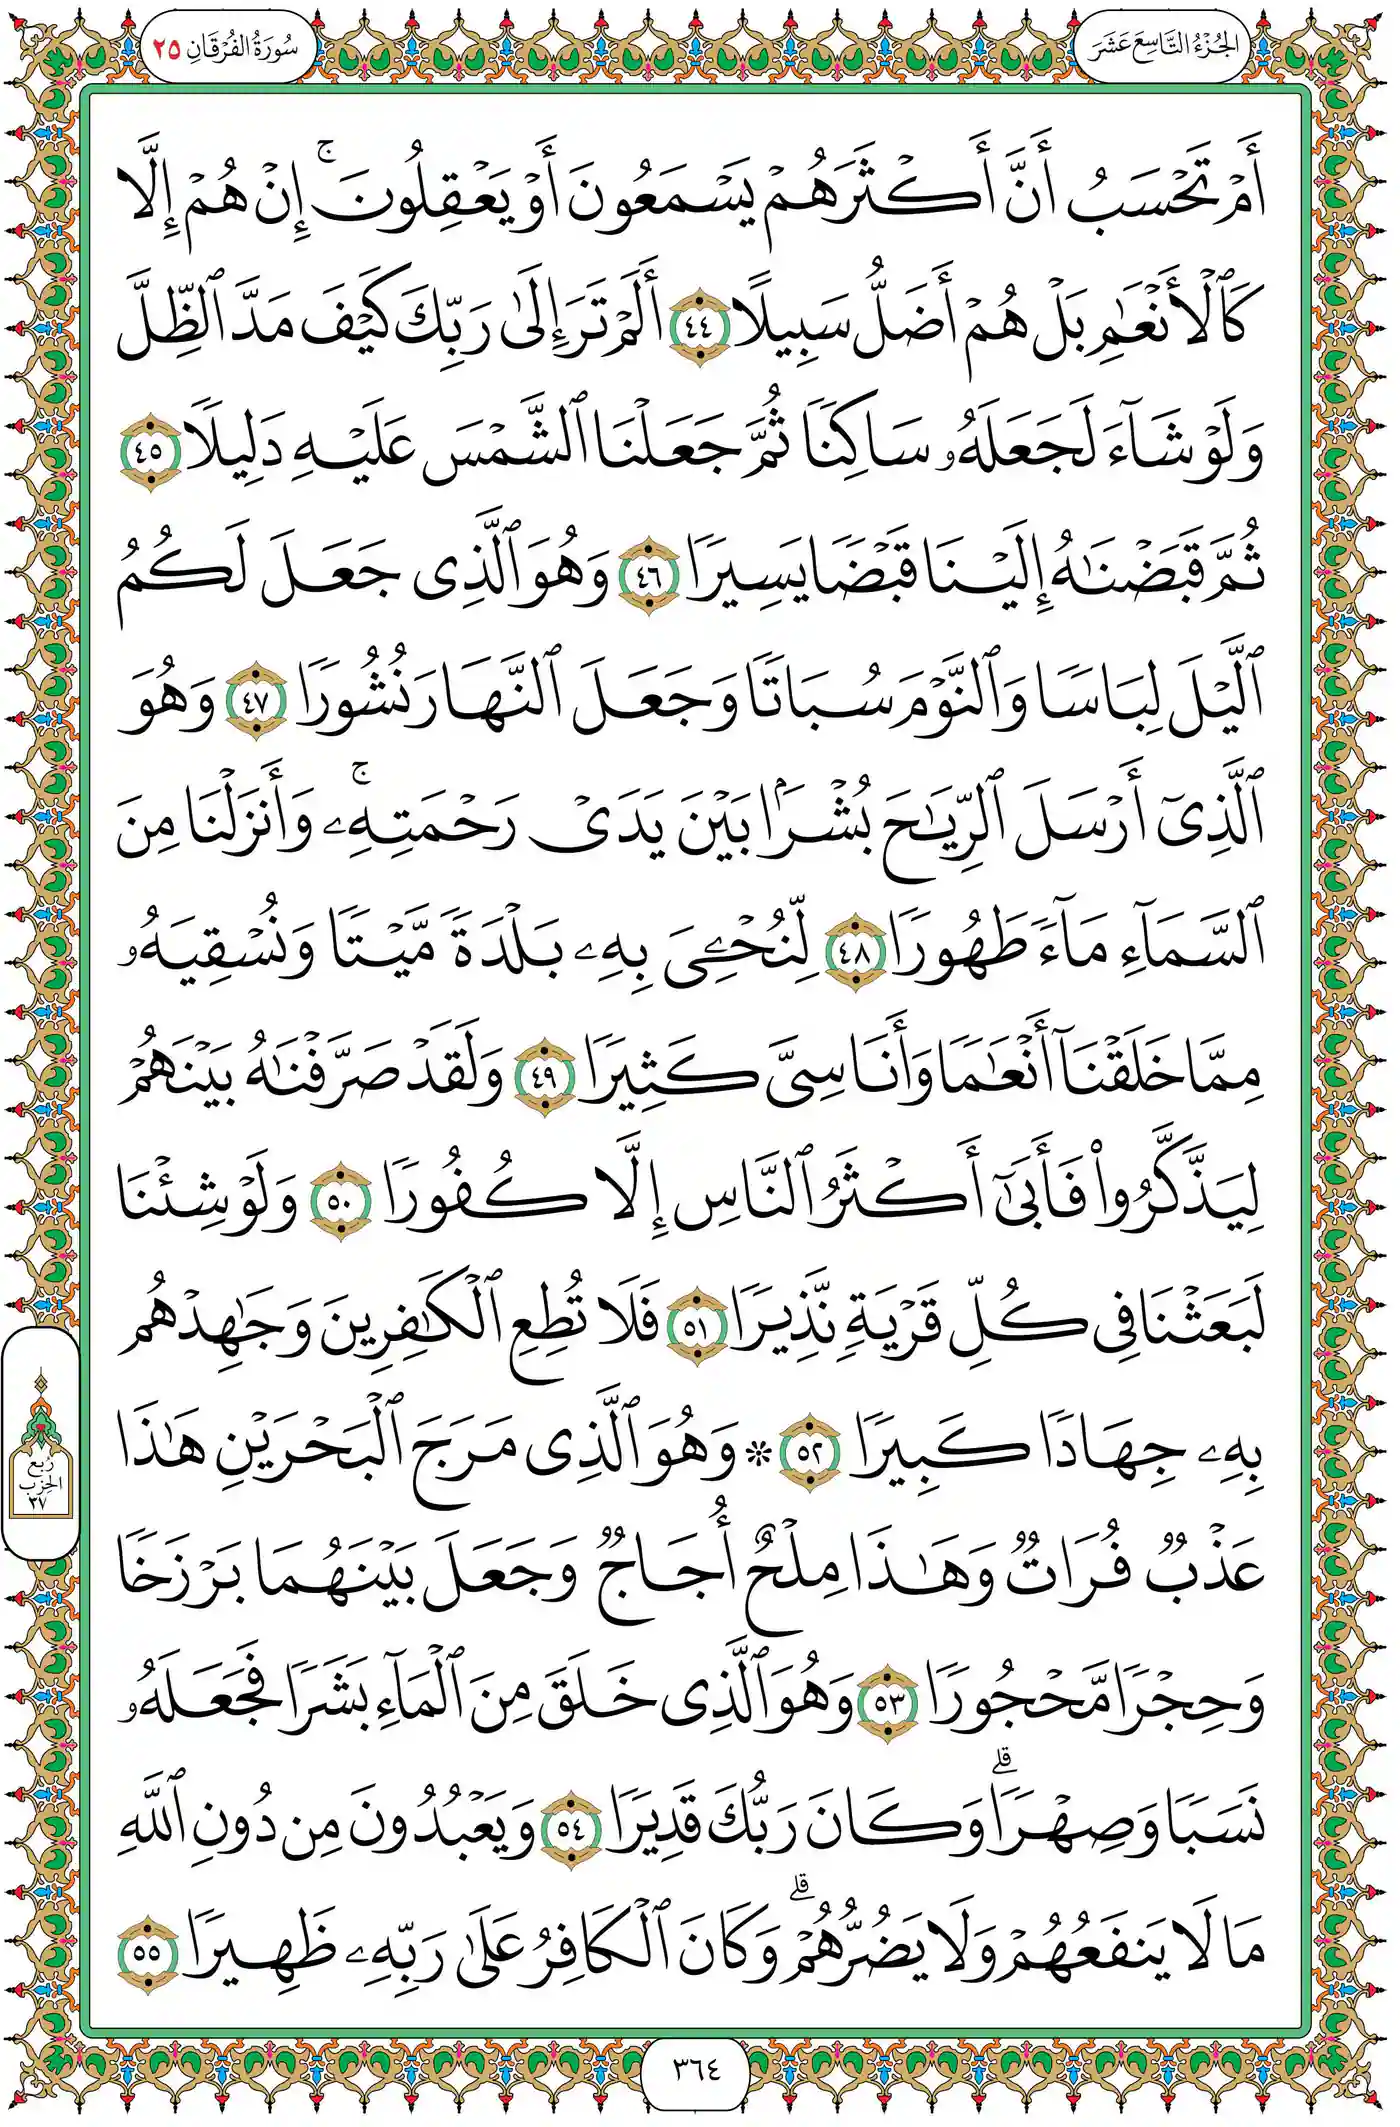 الجُزْءُ التَّاسِعَ عَشَرَ
سُورَةُ الفُرْقَانِ ٢٥
أَمۡ تَحۡسَبُ أَنَّ أَكۡثَرَهُمۡ يَسۡمَعُونَ أَوۡ يَعۡقِلُونَۚ إِنۡ هُمۡ إِلَّا
كَٱلۡأَنۡعَٰمِ بَلۡ هُمۡ أَضَلُّ سَبِيلًا ٤٤ أَلَمۡ تَرَ إِلَىٰ رَبِّكَ كَيۡفَ مَدَّ ٱلظِّلَّ
وَلَوۡ شَآءَ لَجَعَلَهُۥ سَاكِنٗا ثُمَّ جَعَلۡنَا ٱلشَّمۡسَ عَلَيۡهِ دَلِيلٗا ٤٥
ثُمَّ قَبَضۡنَٰهُ إِلَيۡنَا قَبۡضٗا يَسِيرٗا ٤٦ وَهُوَ ٱلَّذِي جَعَلَ لَكُمُ
ٱلَّيۡلَ لِبَاسٗا وَٱلنَّوۡمَ سُبَاتٗا وَجَعَلَ ٱلنَّهَارَ نُشُورٗا ٤٧ وَهُوَ
ٱلَّذِيٓ أَرۡسَلَ ٱلرِّيَٰحَ بُشۡرَۢا بَيۡنَ يَدَيۡ رَحۡمَتِهِۦۚ وَأَنزَلۡنَا مِنَ
ٱلسَّمَآءِ مَآءٗ طَهُورٗا ٤٨ لِّنُحۡـِۧيَ بِهِۦ بَلۡدَةٗ مَّيۡتٗا وَنُسۡقِيَهُۥ
مِمَّا خَلَقۡنَآ أَنۡعَٰمٗا وَأَنَاسِيَّ كَثِيرٗا ٤٩ وَلَقَدۡ صَرَّفۡنَٰهُ بَيۡنَهُمۡ
لِيَذَّكَّرُواْ فَأَبَىٰٓ أَكۡثَرُ ٱلنَّاسِ إِلَّا كُفُورٗا ٥٠ وَلَوۡ شِئۡنَا
لَبَعَثۡنَا فِي كُلِّ قَرۡيَةٖ نَّذِيرٗا ٥١ فَلَا تُطِعِ ٱلۡكَٰفِرِينَ وَجَٰهِدۡهُم
بِهِۦ جِهَادٗا كَبِيرٗا ٥٢ ۞ وَهُوَ ٱلَّذِي مَرَجَ ٱلۡبَحۡرَيۡنِ هَٰذَا
عَذۡبٞ فُرَاتٞ وَهَٰذَا مِلۡحٌ أُجَاجٞ وَجَعَلَ بَيۡنَهُمَا بَرۡزَخٗا
وَحِجۡرٗا مَّحۡجُورٗا ٥٣ وَهُوَ ٱلَّذِي خَلَقَ مِنَ ٱلۡمَآءِ بَشَرٗا فَجَعَلَهُۥ
نَسَبٗا وَصِهۡرٗاۗ وَكَانَ رَبُّكَ قَدِيرٗا ٥٤ وَيَعۡبُدُونَ مِن دُونِ ٱللَّهِ
مَا لَا يَنفَعُهُمۡ وَلَا يَضُرُّهُمۡۗ وَكَانَ ٱلۡكَافِرُ عَلَىٰ رَبِّهِۦ ظَهِيرٗا ٥٥
رُبع
الحِزب
٣٧
٣٦٤